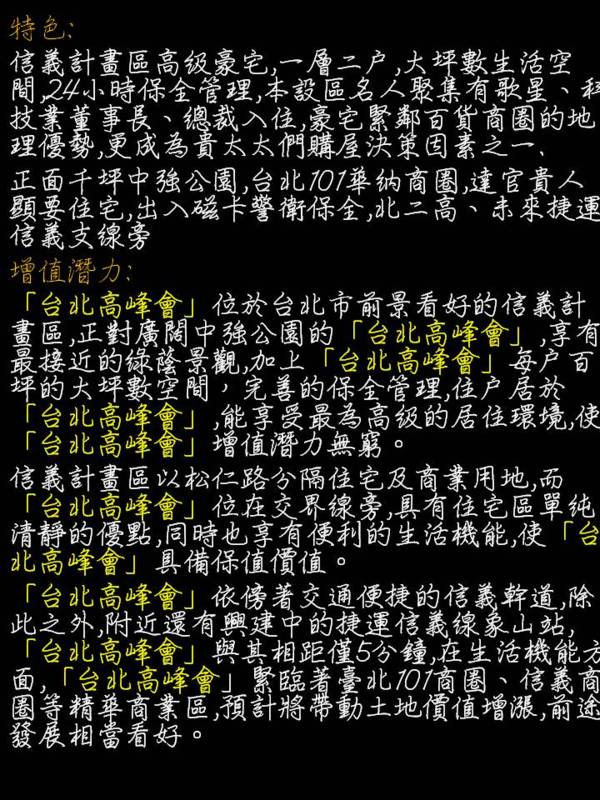 特色:
信義計畫區高級豪宅,一層二戶,大坪數生活空
間,24小時保全管理,本設區名人聚集有歌星、科
技業董事長、總裁入住,豪宅緊鄰百貨商圈的地
理優勢,更成為貴太太們購屋決策因素之一.
正面千坪中強公園,台北101華納商圈,達官貴人
顯要住宅,出入磁卡警衛保全,北二高、未來捷運
信義支線旁
增值潛力:
「台北高峰會」位於台北市前景看好的信義計
畫區,正對廣闊中強公園的「台北高峰會」,享有
最接近的綠蔭景觀,加上「台北高峰會」每戶百
坪的大坪數空間，完善的保全管理,住戶居於
「台北高峰會」,能享受最為高級的居住環境,使
「台北高峰會」增值潛力無窮。
信義計畫區以松仁路分隔住宅及商業用地,而
「台北高峰會」位在交界線旁,具有住宅區單純
清靜的優點,同時也享有便利的生活機能,使「台
北高峰會」具備保值價值。
「台北高峰會」依傍著交通便捷的信義幹道,除
此之外,附近還有興建中的捷運信義線象山站,
「台北高峰會」與其相距僅5分鐘,在生活機能方
面,「台北高峰會」緊臨著臺北101商圈、信義商
圈等精華商業區,預計將帶動土地價值增漲,前途
發展相當看好。